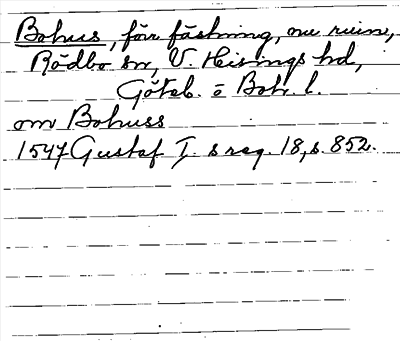 Bohus, förr fästning, nu ruin,
Rödbo sn, V. Hisings hd,
Göteb. o Boh. l.
om Bohuss
1547 Gustaf I. s reg. 18, s. 852.